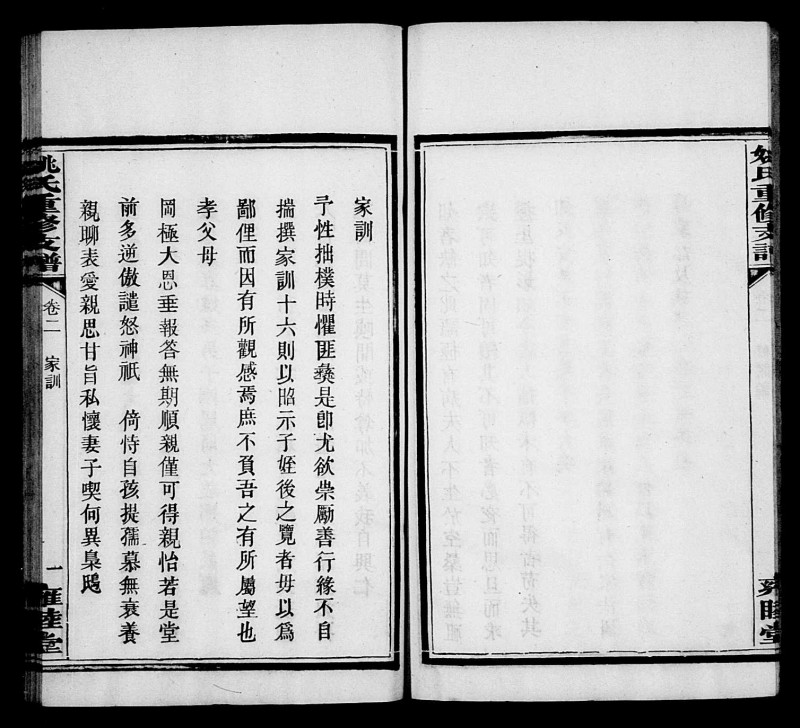 姚氏重修支譜
雍睦堂
家訓
予性拙樸時懼匪彝是卽尤欲崇勵善行緣不自
揣撰家訓十六則以昭示子姪後之覽者毋以爲
鄙俚而因有所觀感焉庶不負吾之有所屬望也
孝父母
罔極大恩垂報答無期順親僅可得親怡若是堂
前多逆傲譴怒神祇 倚恃自孩提孺慕無衰養
親聊表愛親思甘旨私懷妻子喫何異梟鴟
姚氏重修支譜
卷二
家訓
一
雍睦堂